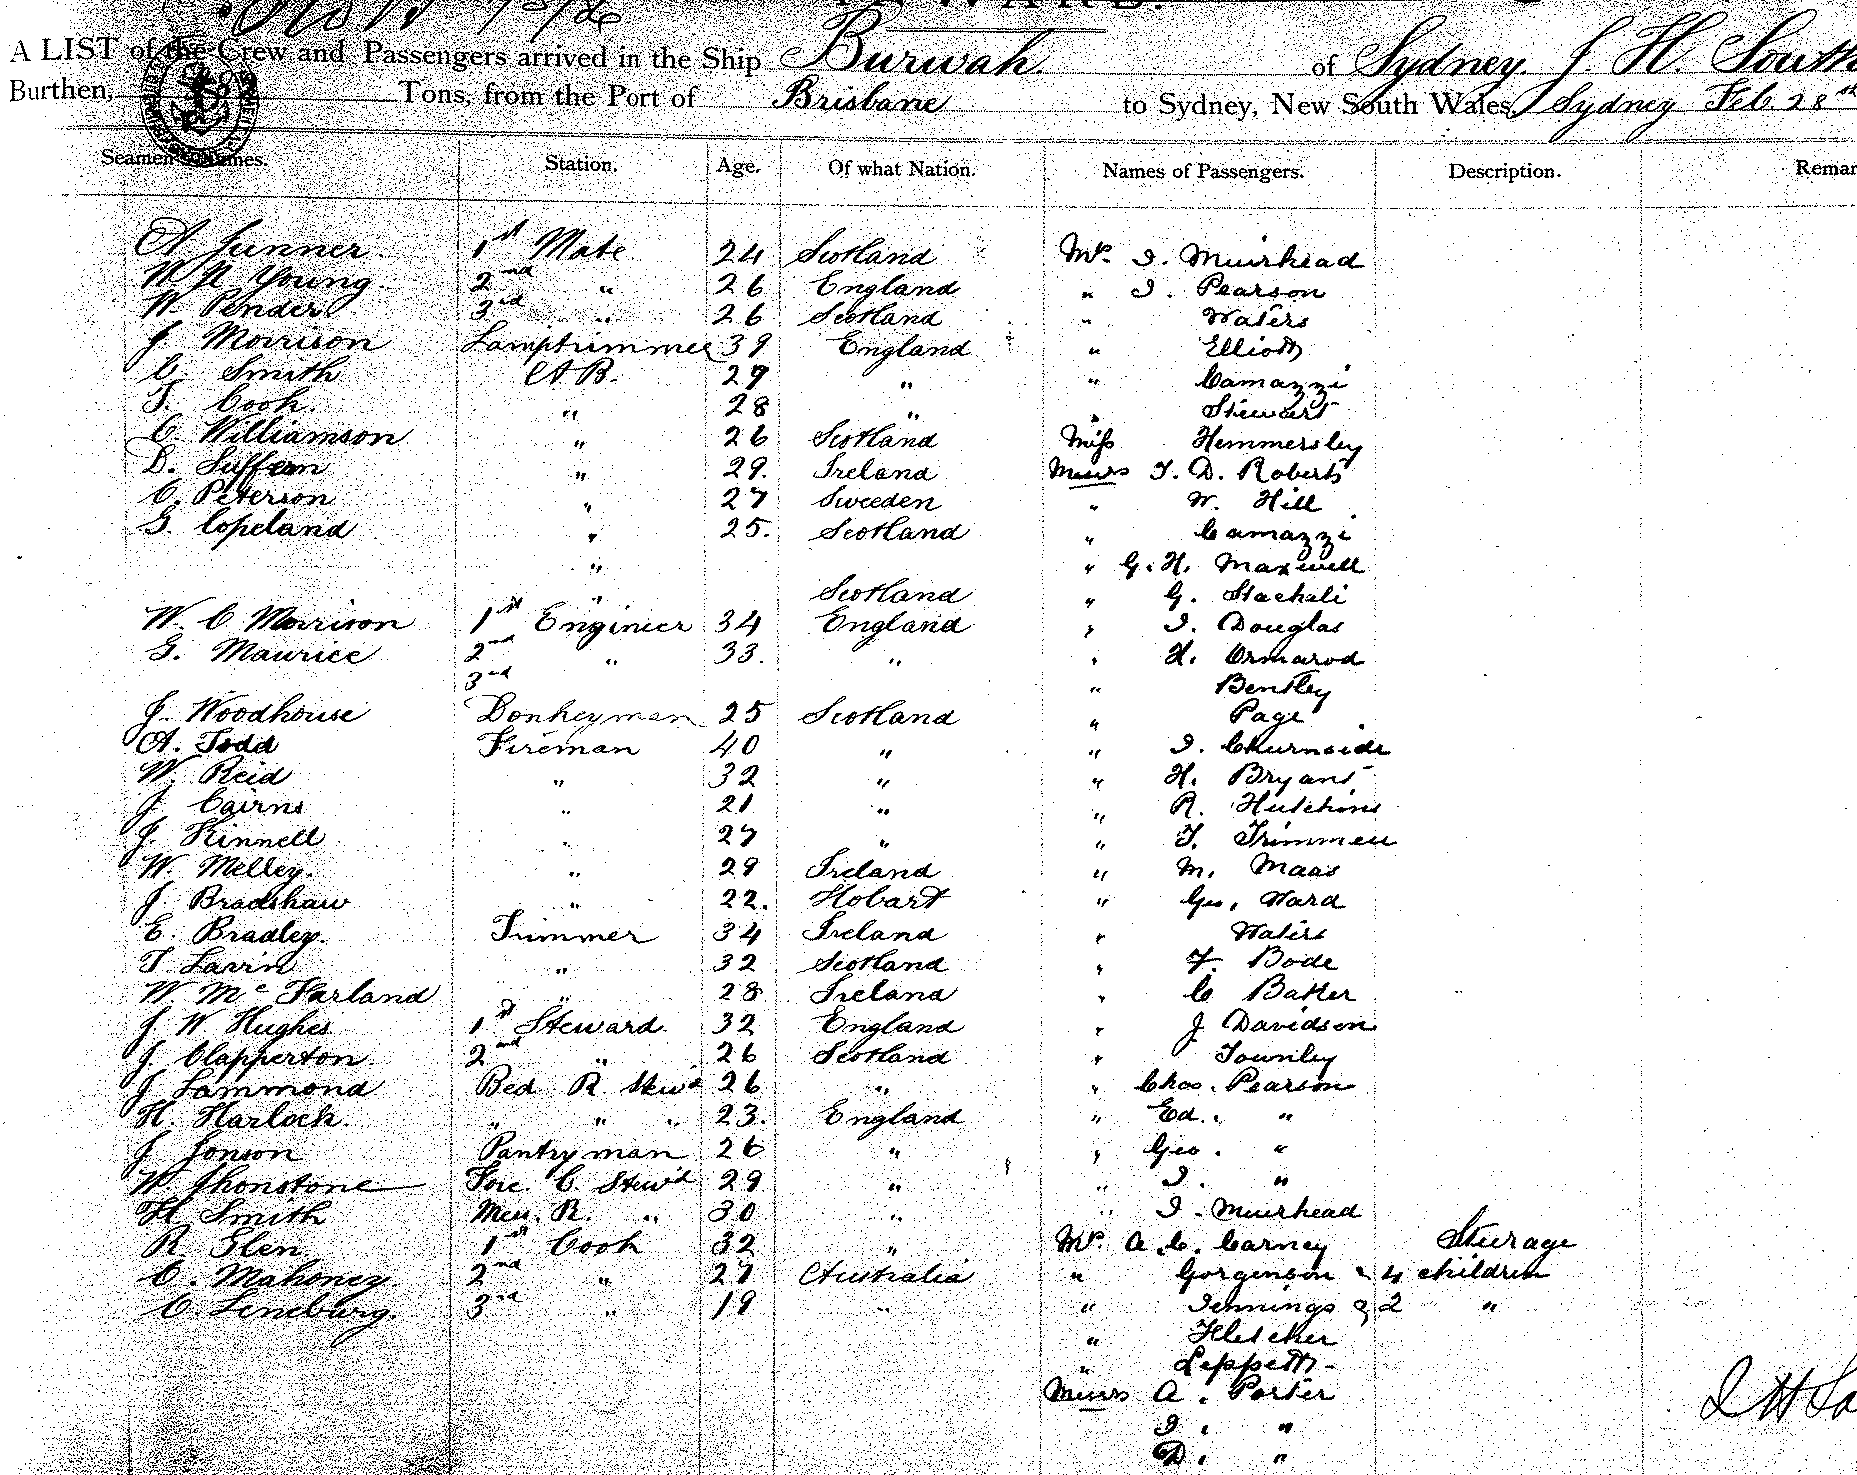 A LIST of the Crew and Passengers arrived in the Ship Burwah. of Sydney. J. H. South
Burthen, Tons, from the Port of Brisbane to Sydney, New South Wales, Sydney Feb 28th
Seamen's Names. Station. Age. Of what Nation. Names of Passengers. Description. Remar
A Junner 1st Mate 24 Scotland Mr. I. Muirhead
W N Young 2nd " 26 England " I. Pearson
W. Pender 3rd " 26 Scotland " Waters
J Morrison Lamptrimmer 39 England " Elliott
C. Smith A B. 29 " " Camazzi
T. Cook. " 28 " " Stewart
C Williamson " 26 Scotland Miss Hemmersley
D. Suffern " 29. Ireland Messrs T. D. Roberts
C. Peterson " 27 Sweeden " W. Hill
G. Copeland " 25. Scotland " Camazzi
" " G. H. Maxwell
" Scotland " G. Stachali
W. C Morrison 1st Engineer 34 England " I. Douglas
G. Maurice 2nd " 33. " " H. Ormarod
3rd " Bentley
J. Woodhouse Donkeyman 25 Scotland " Page
A. Todd Fireman 40 " " I. Churnside
W. Reid " 32 " " H. Bryant
J. Cairns " 21 " " R. Hutchins
J. Kinnell " 27 " " T. Trimmer
W. Melley. " 29 Ireland " M. Maas
J Bradshaw " 22. Hobart " Geo. Ward
E. Bradley. Trimmer 34 Ireland " Waters
T Lavin " 32 Scotland " F. Bode
W. Mc Farland " 28 Ireland " C Baker
J W Hughes 1st Steward. 32 England " J Davidson
J. Clapperton 2nd " 26 Scotland " Townley
J Lammond Bed R Stewd 26 " " Chas. Pearson
H. Harlock. " " " 23. England " Ed. "
J Jonson Pantryman 26 " " Geo. "
W. Jhonstone Fore C. Stewd 29 " " I. "
H Smith Mess. R. " 30 " " I. Muirhead
R Glen 1st Cook 32 " Mr. A. C. Carney Steerage
C. Mahoney 2nd " 27 Australia " Gorgenson & 4 children
C. Leneburg. 3rd " 19 " " Jennings & 2 "
" Fletcher
" Leppett
Messrs A. Porter
I. "
D. "